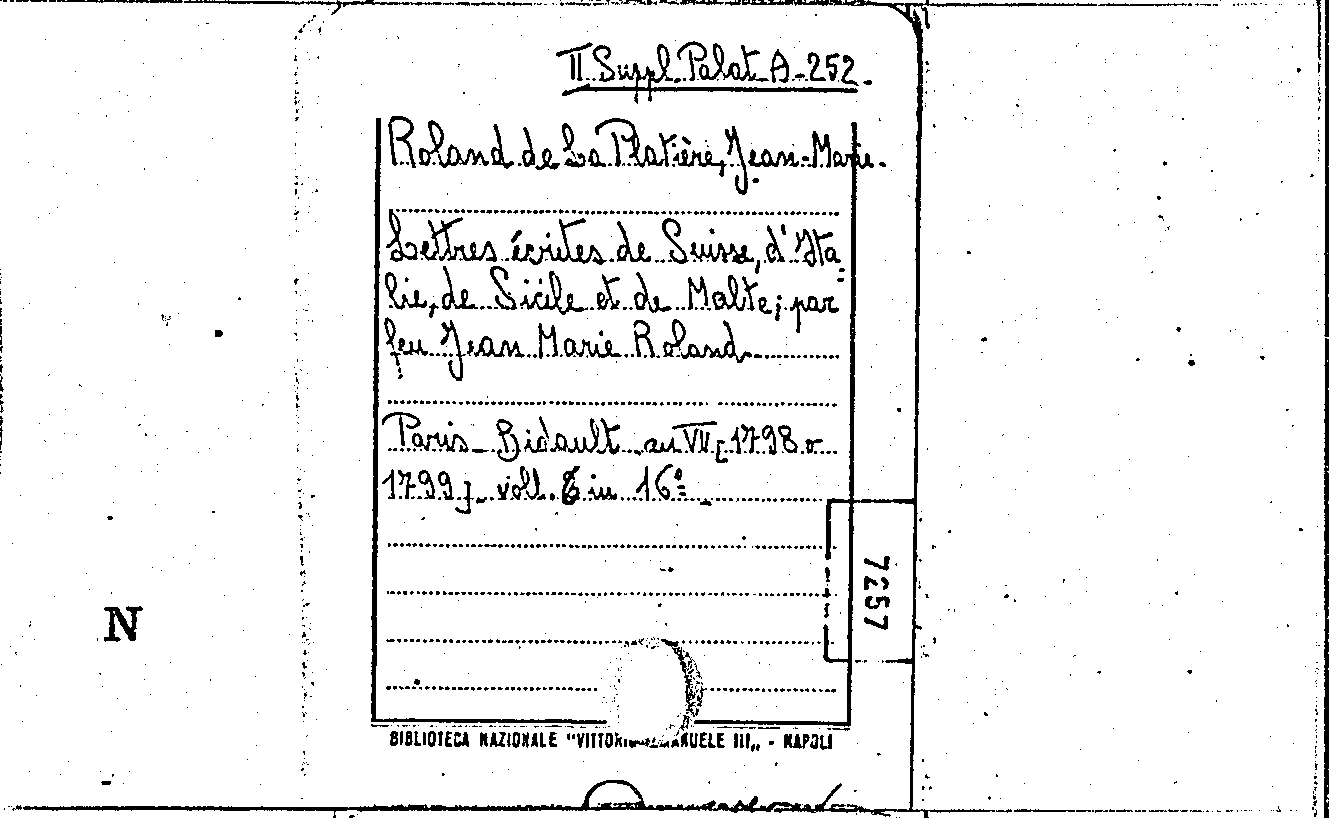 II Suppl. Palat A-252.
Roland de La Platière, Jean-Marie.
Lettres écrites de Suisse, d'Ita=
lie, de Sicile et de Malte; par
feu Jean Marie Roland.
Paris_ Bidault an VII [1798 o
1799]_ voll. 6 in 16º
7257
N
BIBLIOTECA NAZIONALE "VITTORIO EMANUELE III„ - NAPOLI